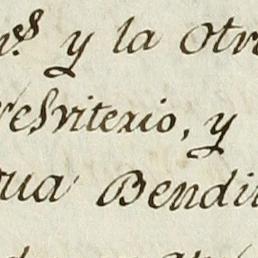 y la otr
resviterio, y
gua Bendi